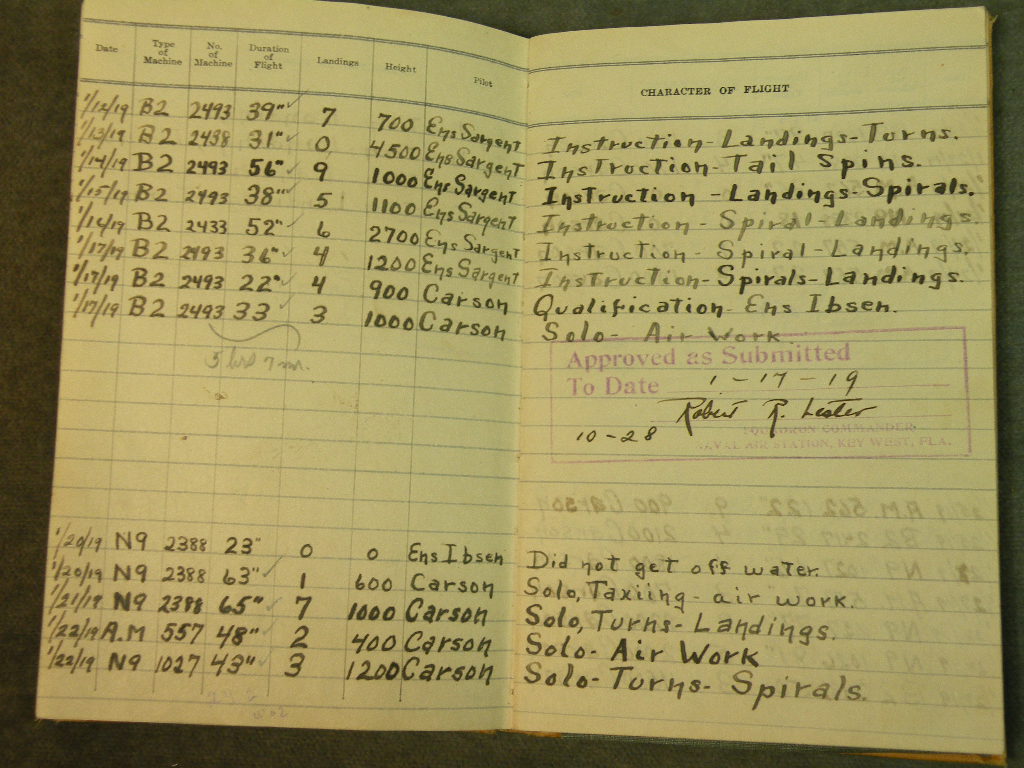 Date Type of Machine No. of Machine Duration of Flight Landings Height Pilot CHARACTER OF FLIGHT
1/12/19 B2 2493 39" 7 700 Ens Sargent Instruction-Landings-Turns.
1/13/19 B2 2438 31" 0 4500 Ens Sargent Instruction-Tail Spins.
1/14/19 B2 2493 56" 9 1000 Ens Sargent Instruction-Landings-Spirals.
1/15/19 B2 2493 38" 5 1100 Ens Sargent Instruction-Spiral-Landings.
1/16/19 B2 2433 52" 6 2700 Ens Sargent Instruction-Spiral-Landings.
1/17/19 B2 2493 36" 4 1200 Ens Sargent Instruction-Spirals-Landings.
1/17/19 B2 2493 22" 4 900 Carson Qualification Ens Ibsen.
1/17/19 B2 2493 33 3 1000 Carson Solo-Air Work
5 hrs 7 m.
Approved as Submitted
To Date 1-17-19
Robert R. Lester
10-28 SQUADRON COMMANDER
NAVAL AIR STATION, KEY WEST, FLA.
1/20/19 N9 2388 23" 0 0 Ens Ibsen Did not get off water.
1/20/19 N9 2388 63" 1 600 Carson Solo, Taxiing-air work.
1/21/19 N9 2388 65" 7 1000 Carson Solo, Turns-Landings.
1/22/19 A.M 557 48" 2 400 Carson Solo-Air Work
1/22/19 N9 1027 43" 3 1200 Carson Solo-Turns-Spirals.